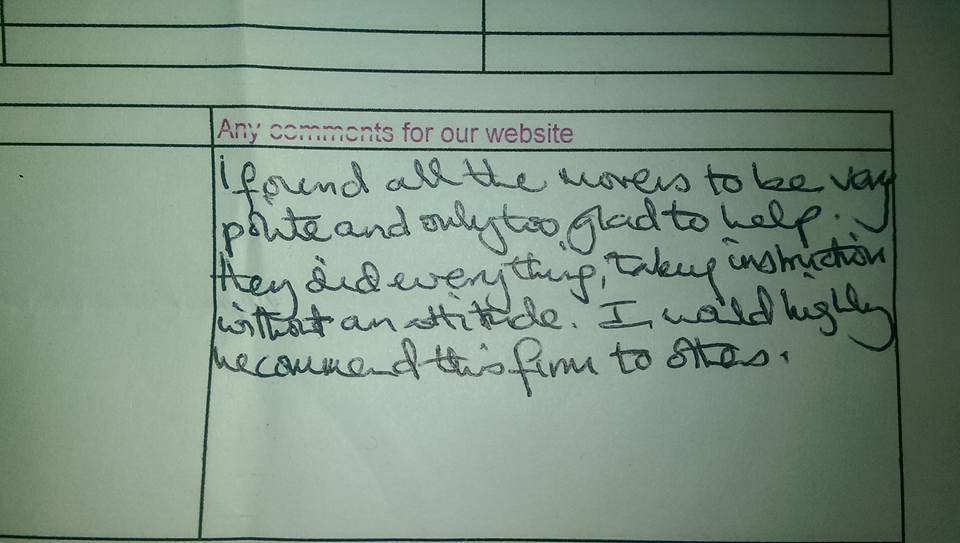 Any comments for our website
I found all the movers to be very
polite and only too glad to help.
They did everything, taking instruction
without an attitude. I would highly
recommend this firm to others.